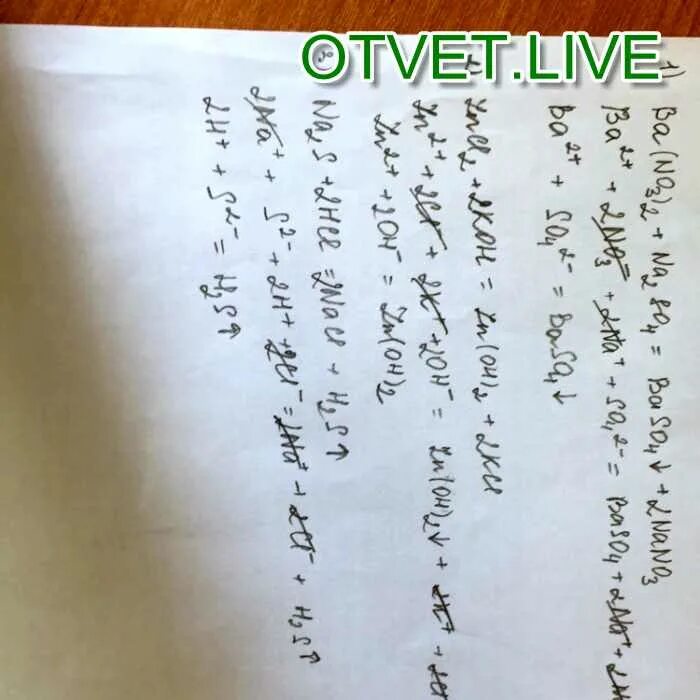 OTVET.LIVE
1) Ba(NO₃)₂ + Na₂SO₄ = BaSO₄↓ + 2NaNO₃
Ba²⁺ + 2NO₃⁻ + 2Na⁺ + SO₄²⁻ = BaSO₄ + 2Na⁺ + 2
Ba²⁺ + SO₄²⁻ = BaSO₄↓
ZnCl₂ + 2KOH = Zn(OH)₂ + 2KCl
Zn²⁺ + 2Cl⁻ + 2K⁺ + 2OH⁻ = Zn(OH)₂↓ + 2K⁺ + 2Cl
Zn²⁺ + 2OH⁻ = Zn(OH)₂
3) Na₂S + 2HCl = 2NaCl + H₂S↑
2Na⁺ + S²⁻ + 2H⁺ + 2Cl⁻ = 2Na⁺ + 2Cl⁻ + H₂S↑
2H⁺ + S²⁻ = H₂S↑